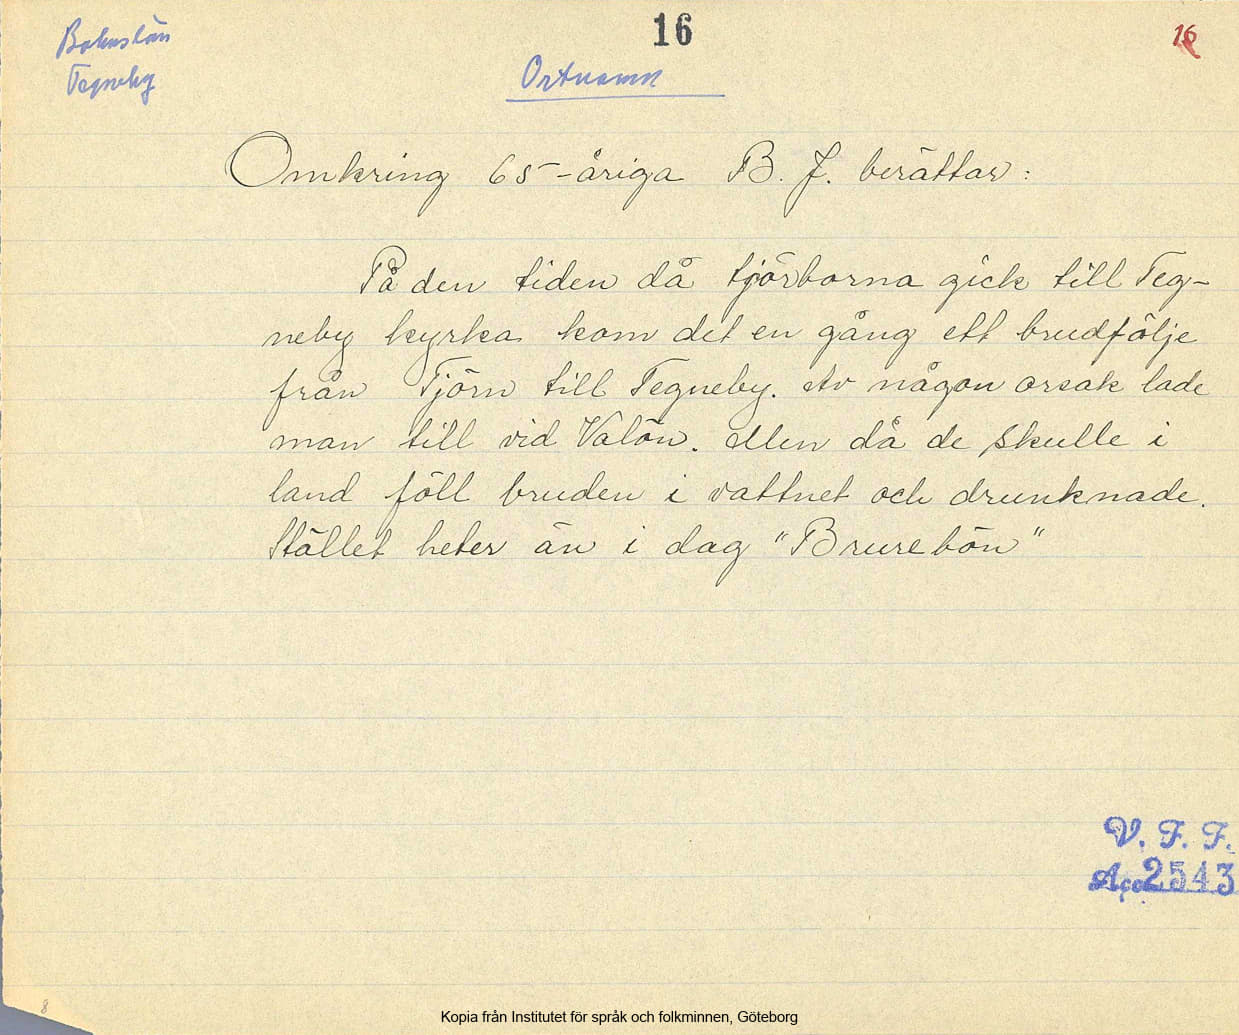 Bohuslän
Tegneby
16
16
Ortnamn
Omkring 65-åriga B. J. berättar:
På den tiden då tjörborna gick till Teg-
neby kyrka kom det en gång ett brudfölje
från Tjörn till Tegneby. Av någon orsak lade
man till vid Valön. Men då de skulle i
land föll bruden i vattnet och drunknade.
Stället heter än i dag "Brurebön"
V. F. F.
Acc 2543
8
Kopia från Institutet för språk och folkminnen, Göteborg